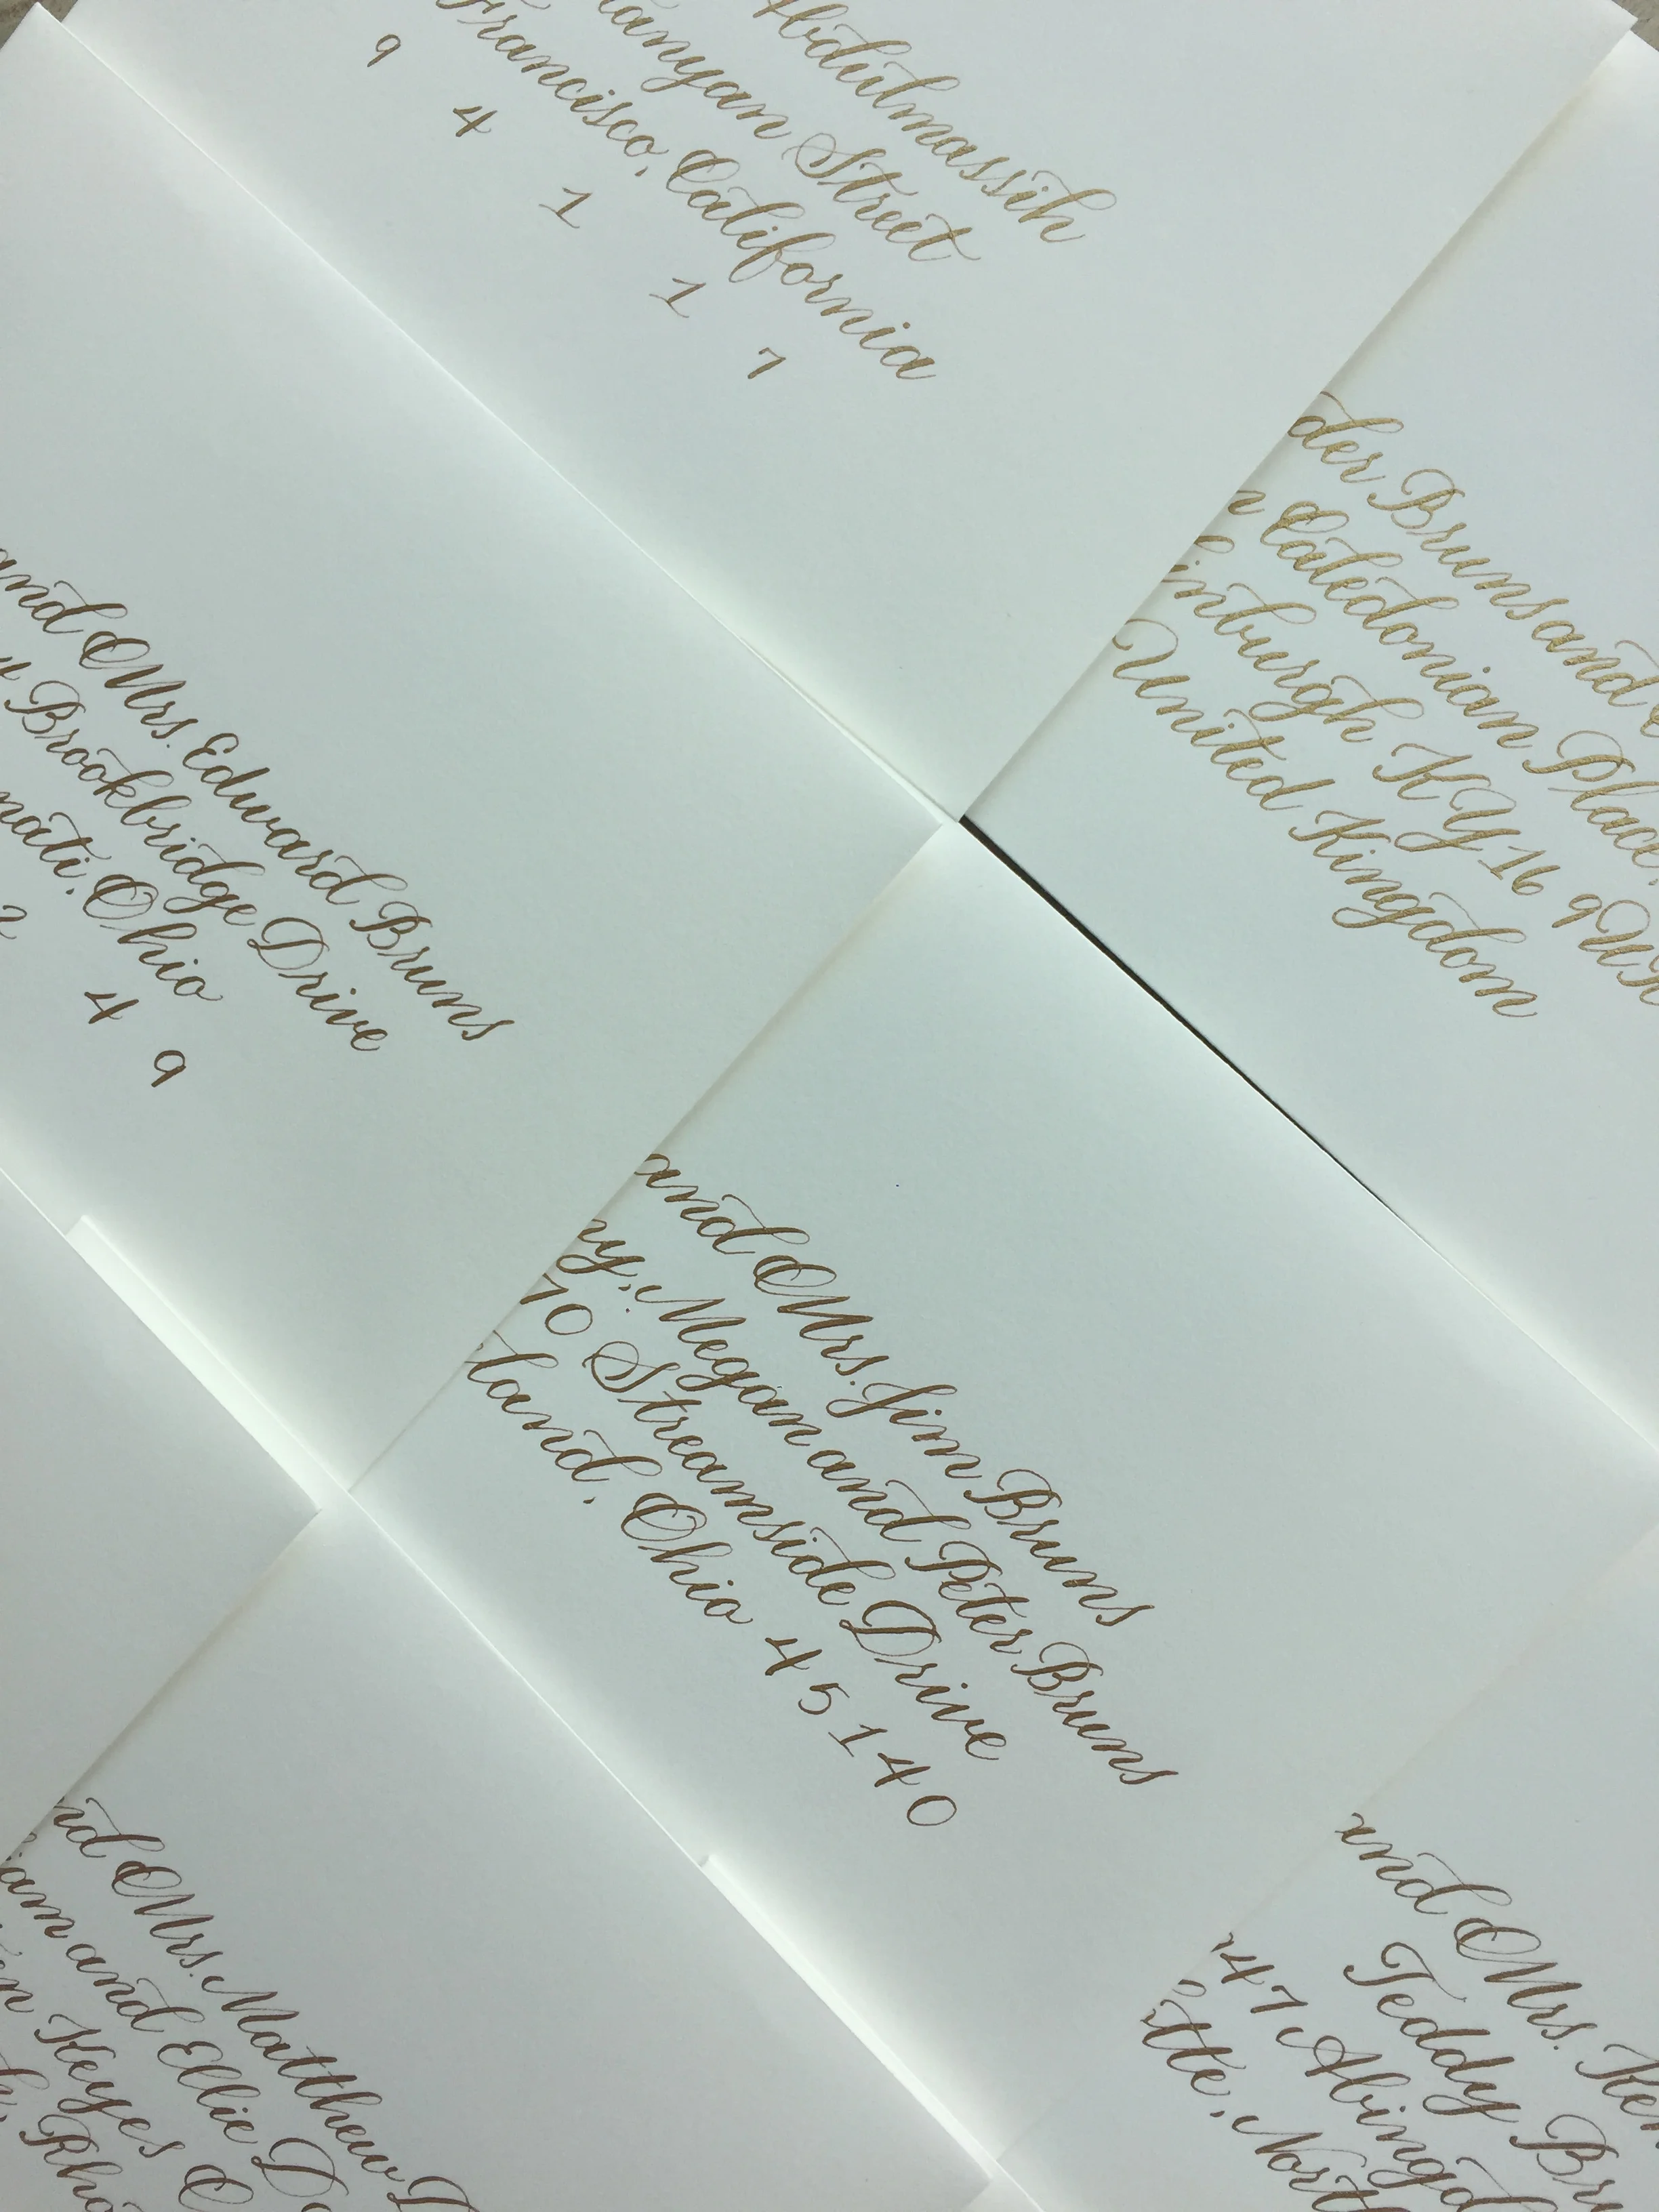 Abdulmassih
anyan Street
Francisco, California
9 4 1 1 7
der Bruns and
n Caledonian Place,
inburgh KY16 9
United Kingdom
and Mrs. Edward Bruns
Brookbridge Drive
nati, Ohio
2 4 9
and Mrs. Jim Bruns
ny, Megan and Peter Bruns
70 Streamside Drive
land, Ohio 45140
nd Mrs. Matthew
am and Ellie D
n Keyes C
h, Rho
and Mrs. Ken
Teddy Bru
47 Abingd
tte, North